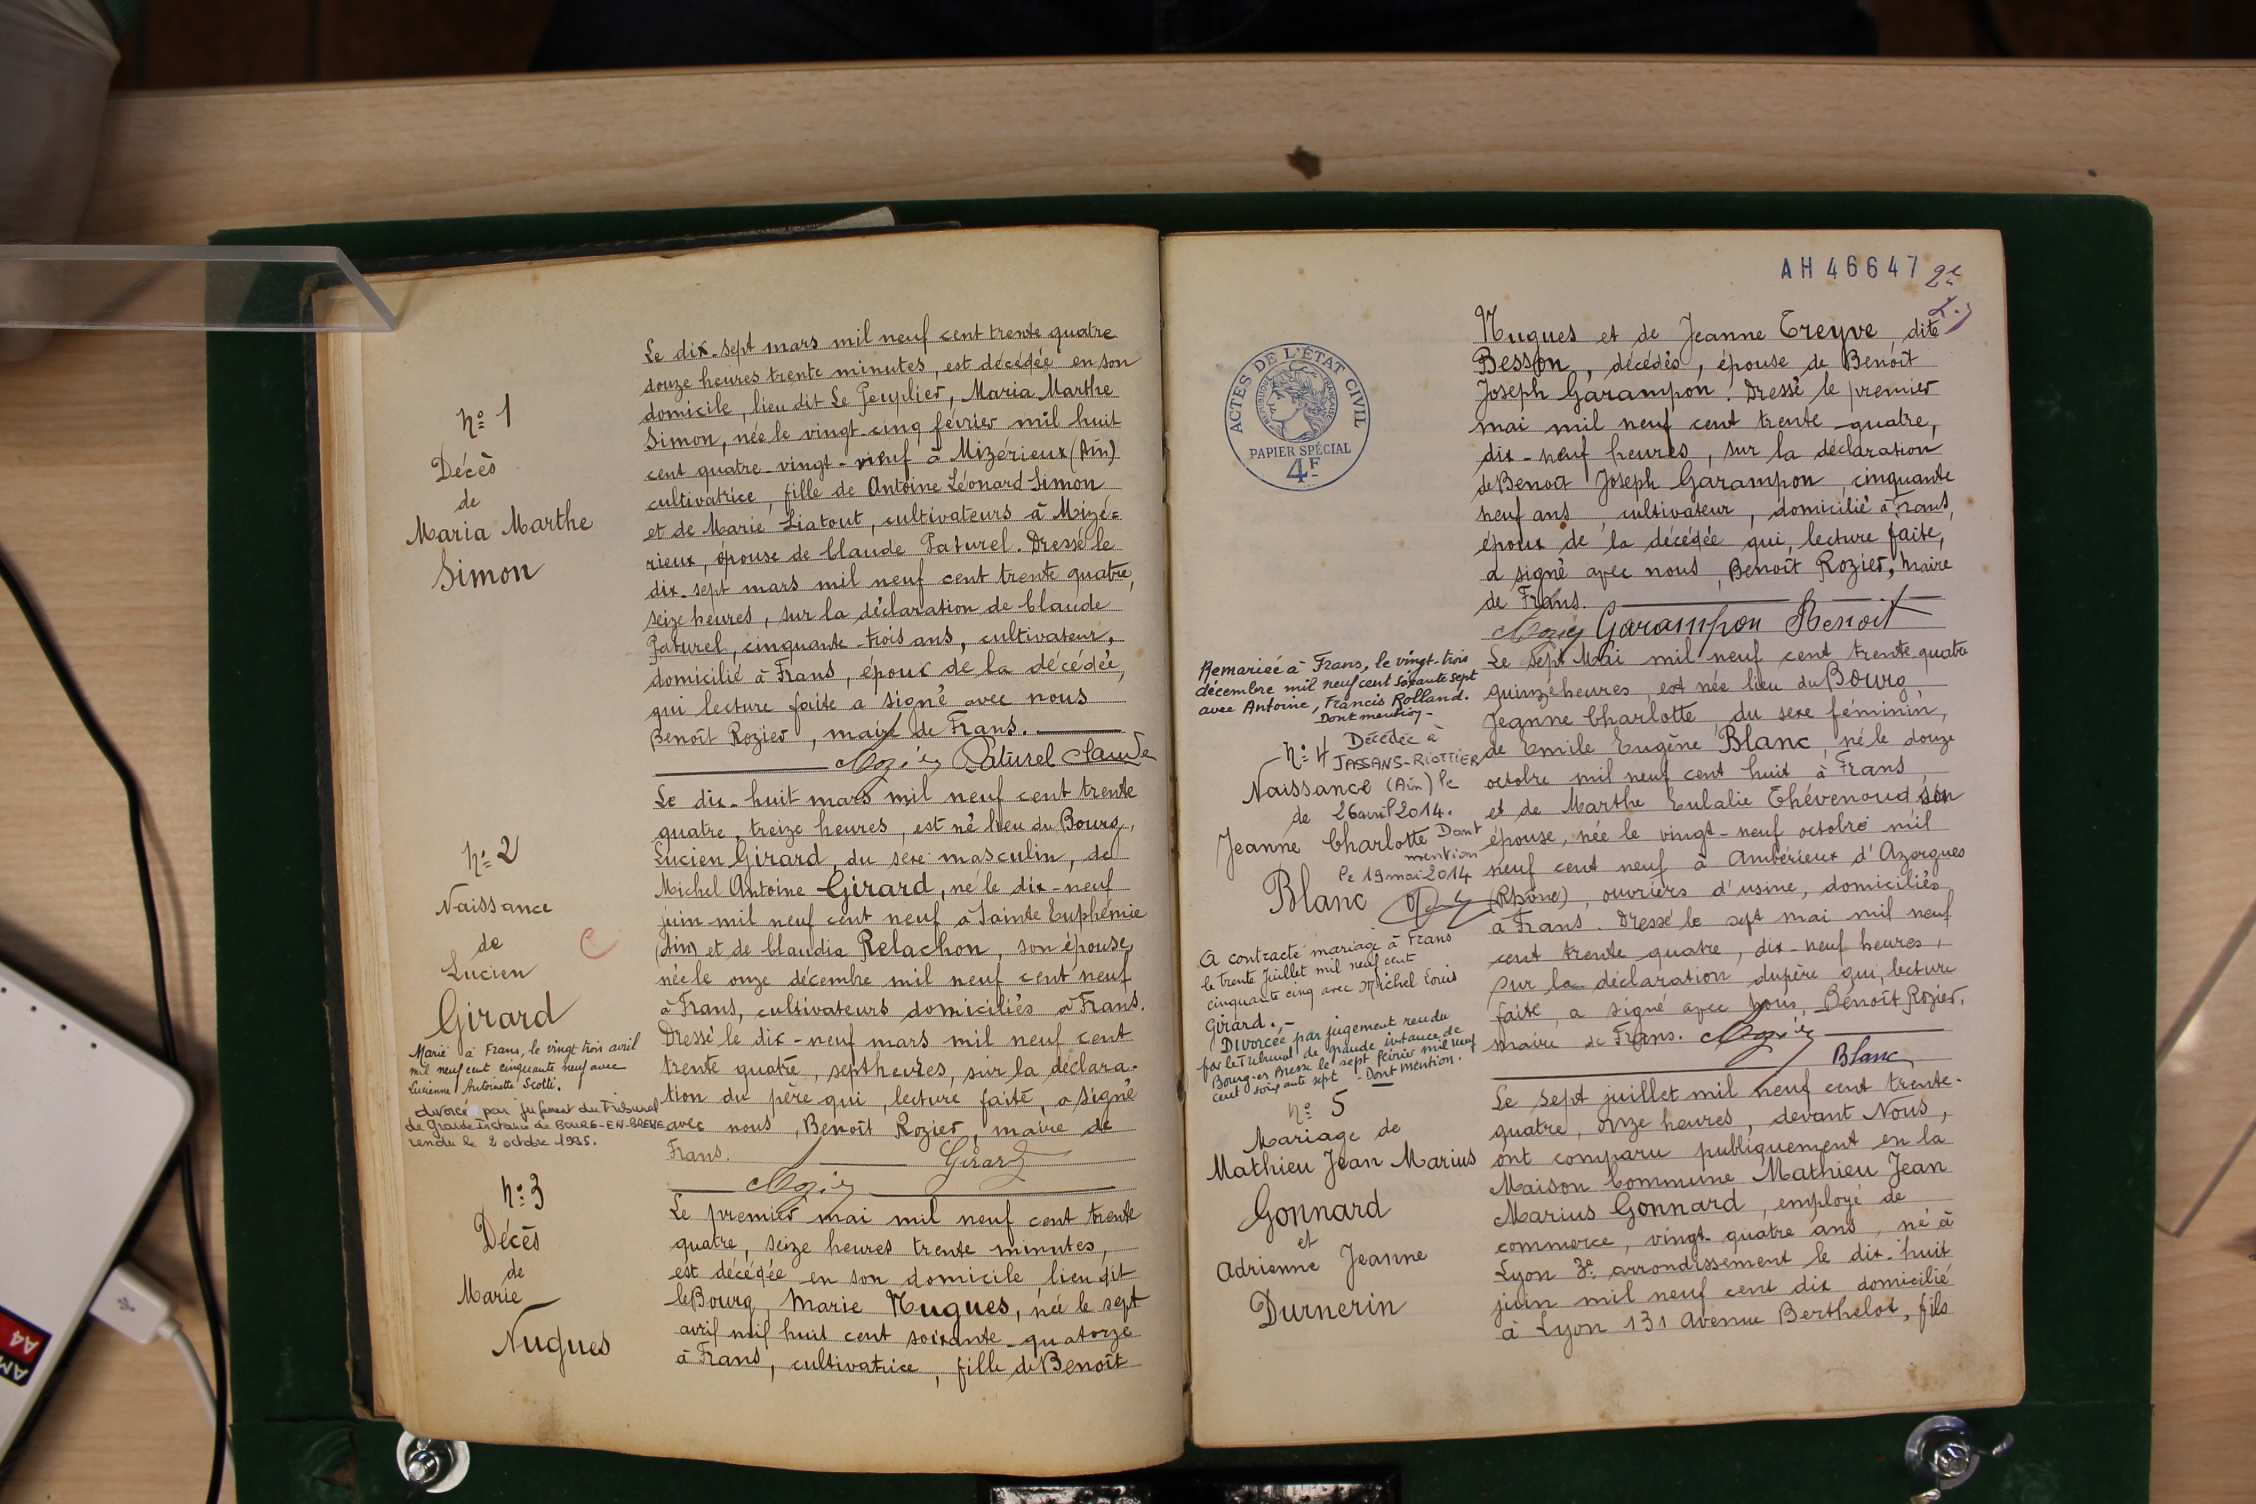 n° 1
Décès
de
Maria Marthe
Simon
Le dix-sept mars mil neuf cent trente quatre
douze heures trente minutes, est décédée en son
domicile, lieu dit Le Peuplier, Maria Marthe
Simon, née le vingt-cinq février mil huit
cent quatre-vingt-neuf à Mizérieux (Ain)
cultivatrice, fille de Antoine Léonard Simon
et de Marie Liatout, cultivateurs à Mizé=
rieux, épouse de Claude Paturel. Dressé le
dix-sept mars mil neuf cent trente quatre,
seize heures, sur la déclaration de Claude
Paturel, cinquante-trois ans, cultivateur,
domicilié à Frans, époux de la décédée,
qui lecture faite a signé avec nous
Benoît Rozier, maire de Frans.
Rozier Paturel Claude
n° 2
Naissance
de
Lucien
Girard
Marié à Frans, le vingt trois avril
mil neuf cent cinquante neuf avec
Lucienne Antoinette Scotti.
divorcé par jugement du Tribunal
de Grande Instance de BOURG-EN-BRESSE
rendu le 2 octobre 1985.
Le dix-huit mars mil neuf cent trente
quatre, treize heures, est né lieu du Bourg,
Lucien Girard, du sexe masculin, de
Michel Antoine Girard, né le dix-neuf
juin mil neuf cent neuf à Sainte Euphémie
(Ain) et de Claudia Relachon, son épouse,
née le onze décembre mil neuf cent neuf
à Frans, cultivateurs domiciliés à Frans.
Dressé le dix-neuf mars mil neuf cent
trente quatre, sept heures, sur la déclara-
tion du père qui, lecture faite, a signé
avec nous, Benoît Rozier, maire de
Frans. Girard
Rozier
n° 3
Décès
de
Marie
Nugues
Le premier mai mil neuf cent trente
quatre, seize heures trente minutes,
est décédée en son domicile lieu dit
le Bourg, Marie Nugues, née le sept
avril mil huit cent soixante-quatorze
à Frans, cultivatrice, fille de Benoît
AH 46647
ACTES DE L'ÉTAT CIVIL
RÉPUBLIQUE FRANÇAISE
PAPIER SPÉCIAL
4F
Nugues et de Jeanne Treyve, dite
Besson, décédés, épouse de Benoît
Joseph Garampon. Dressé le premier
mai mil neuf cent trente-quatre,
dix-neuf heures, sur la déclaration
de Benoit Joseph Garampon, cinquante
neuf ans, cultivateur, domicilié à Frans,
époux de la décédée qui, lecture faite,
a signé avec nous, Benoît Rozier, maire
de Frans.
Rozier Garampon Benoit
Remariée à Frans, le vingt-trois
décembre mil neuf cent soixante sept
avec Antoine, Francis Rolland.
Dont mention -
n° 4
Naissance
de
Jeanne Charlotte
Blanc
Décédée à
JASSANS-RIOTTIER
(Ain) le
26 avril 2014.
Dont
mention
le 19 mai 2014
A contracté mariage à Frans
le trente Juillet mil neuf cent
cinquante cinq avec Michel Louis
Girard. -
Divorcée par jugement rendu
par le Tribunal de grande instance de
Bourg-en-Bresse le sept février mil neuf
cent soixante sept - Dont mention.
Le sept Mai mil neuf cent trente-quatre
quinze heures, est née lieu du Bourg,
Jeanne Charlotte, du sexe féminin,
de Emile Eugène Blanc, né le douze
octobre mil neuf cent huit à Frans
et de Marthe Eulalie Thévenoud, son
épouse, née le vingt-neuf octobre mil
neuf cent neuf à Ambérieux d'Azergues
(Rhône), ouvriers d'usine, domiciliés
à Frans. Dressé le sept mai mil neuf
cent trente quatre, dix-neuf heures,
sur la déclaration du père qui, lecture
faite, a signé avec nous, Benoît Rozier,
maire de Frans. Rozier
Blanc
n° 5
Mariage de
Mathieu Jean Marius
Gonnard
et
Adrienne Jeanne
Durnerin
Le sept juillet mil neuf cent trente-
quatre, onze heures, devant Nous,
ont comparu publiquement en la
Maison Commune Mathieu Jean
Marius Gonnard, employé de
commerce, vingt-quatre ans, né à
Lyon 3e arrondissement le dix-huit
juin mil neuf cent dix domicilié
à Lyon 131 Avenue Berthelot, fils
A4